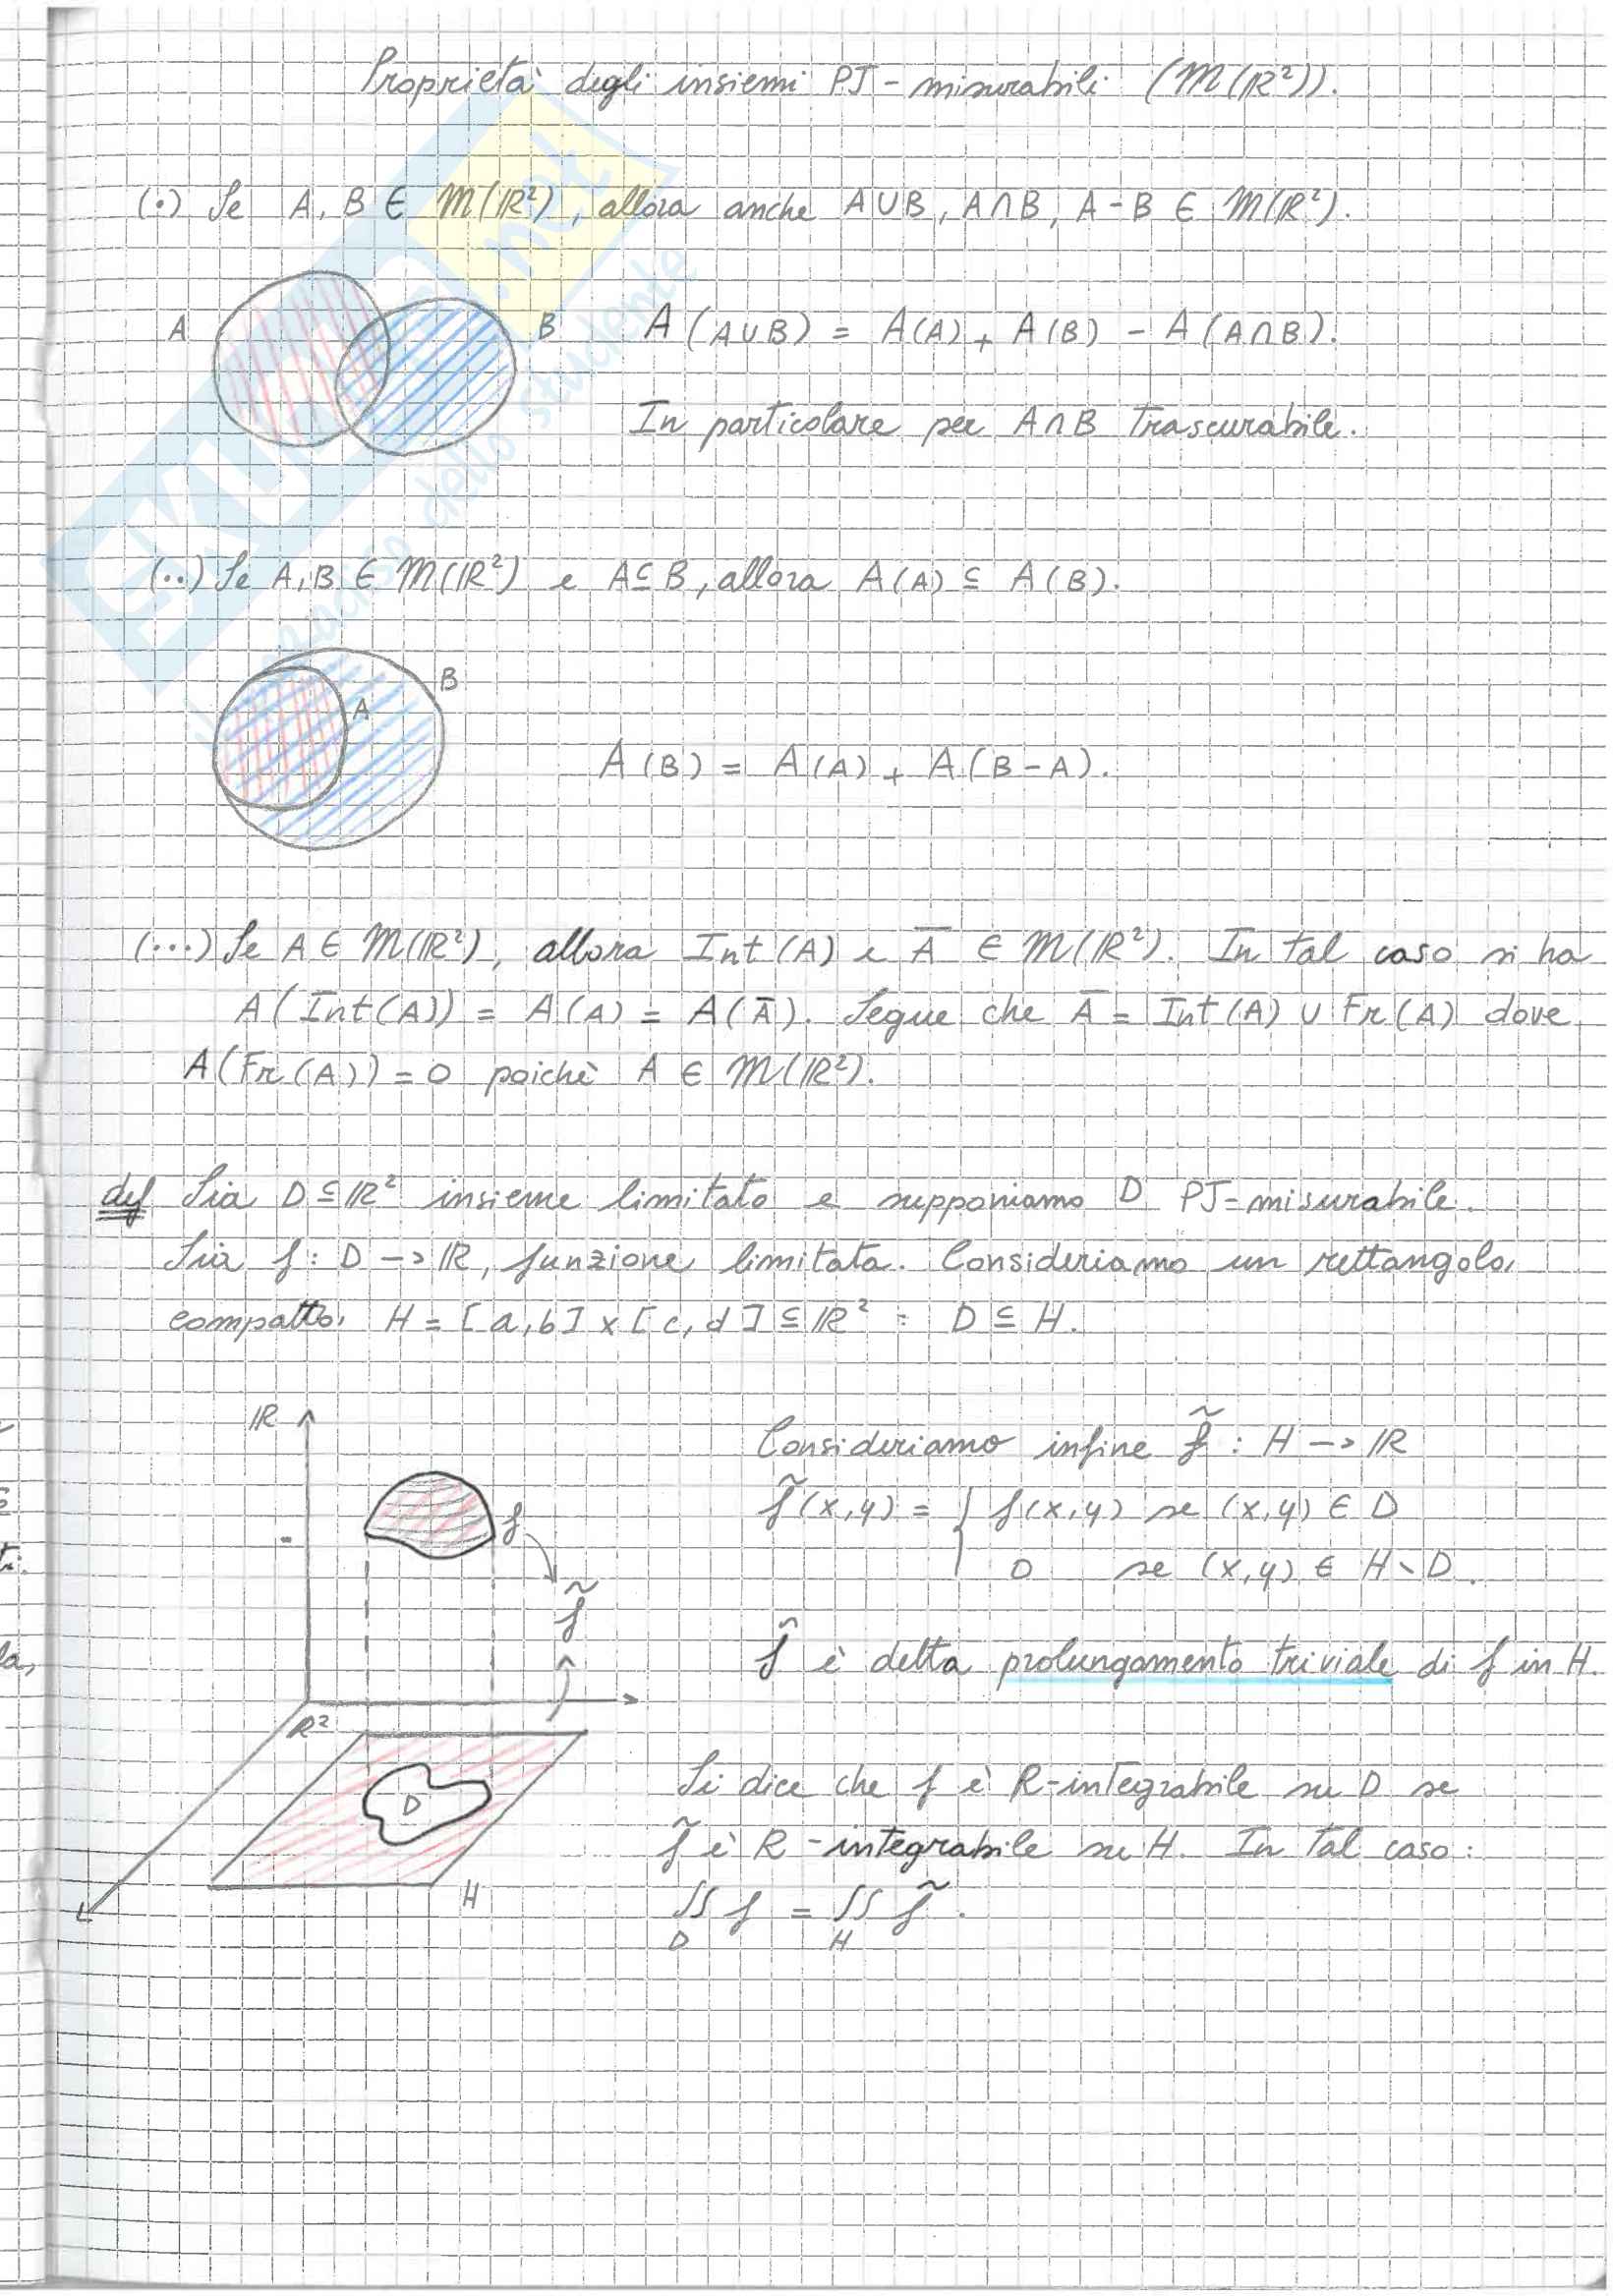 Proprietà degli insiemi PJ-misurabili (M(ℝ²)).
(·) Se A, B ∈ M(ℝ²), allora anche A∪B, A∩B, A-B ∈ M(ℝ²).
A
B
A(A∪B) = A(A) + A(B) - A(A∩B).
In particolare per A∩B trascurabile.
(··) Se A,B ∈ M(ℝ²) e A⊆B, allora A(A) ⊆ A(B).
B
A
A(B) = A(A) + A(B-A).
(···) Se A ∈ M(ℝ²), allora Int(A) e A̅ ∈ M(ℝ²). In tal caso si ha
A(Int(A)) = A(A) = A(A̅). Segue che A̅ = Int(A) ∪ Fr(A) dove
A(Fr(A)) = 0 poichè A ∈ M(ℝ²).
def Sia D⊆ℝ² insieme limitato e supponiamo D PJ-misurabile.
Sia f: D -> ℝ, funzione limitata. Consideriamo un rettangolo
compatto H = [a,b] x [c,d] ⊆ ℝ² : D ⊆ H.
ℝ
Consideriamo infine f̃ : H -> ℝ
f̃(x,y) = { f(x,y) se (x,y) ∈ D
0 se (x,y) ∈ H \ D.
f
f̃
f̃ è detta prolungamento triviale di f in H.
ℝ²
D
H
Si dice che f è R-integrabile su D se
f̃ è R-integrabile su H. In tal caso:
∬ f = ∬ f̃ .
D H